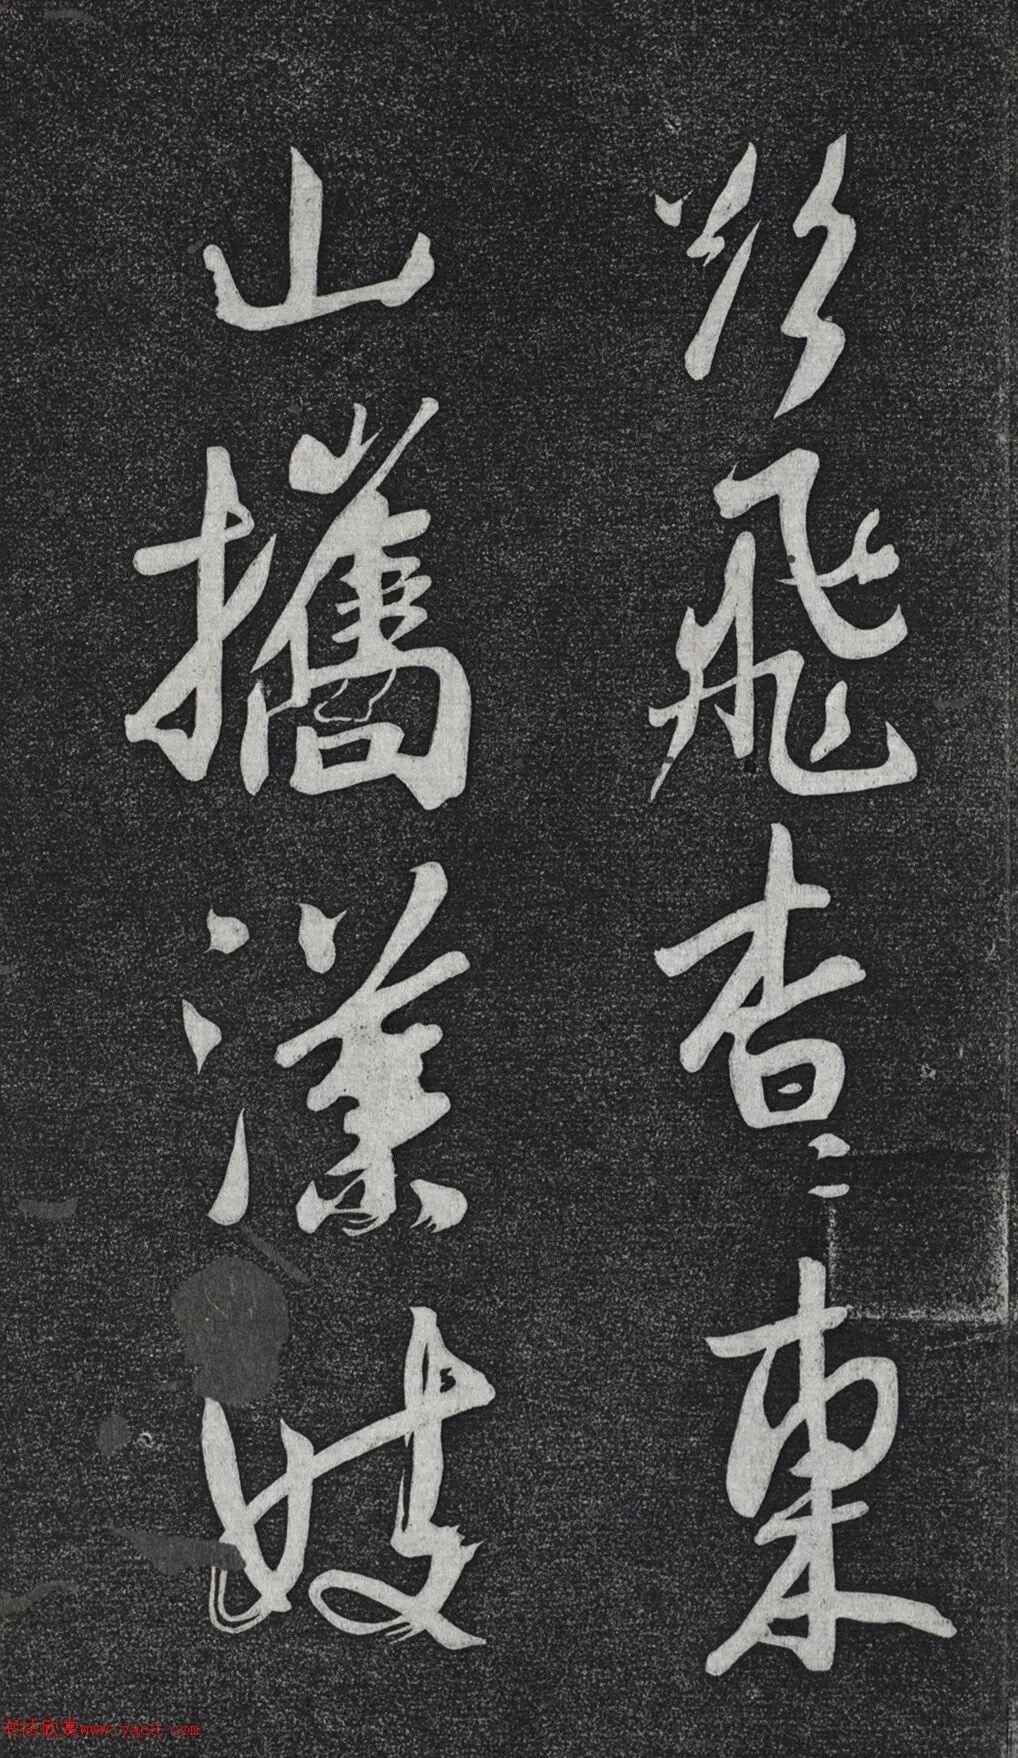 飛杳〻東
山攜漢妓
书法欣赏www.yac8.com